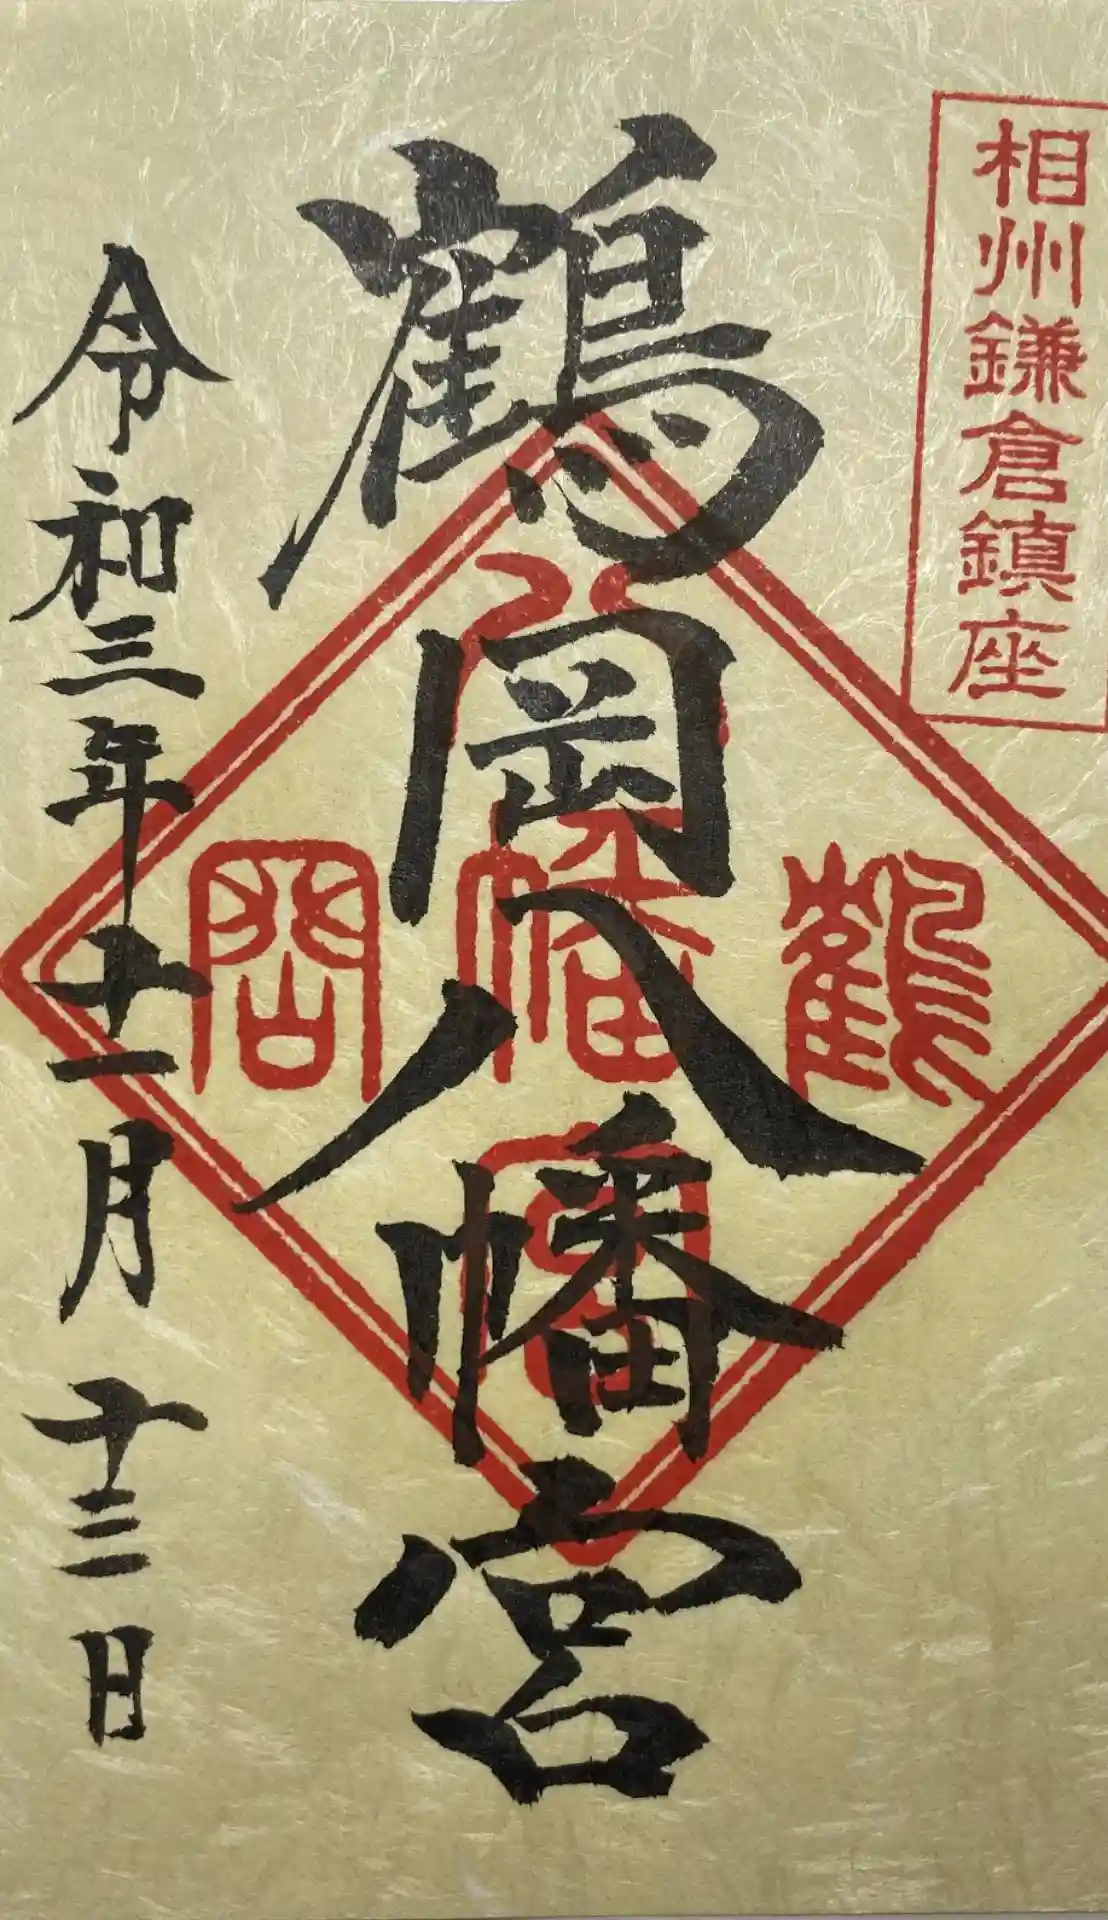 相州鎌倉鎮座
鶴岡八幡宮
鶴
八幡宮
岡
令和三年十一月十三日